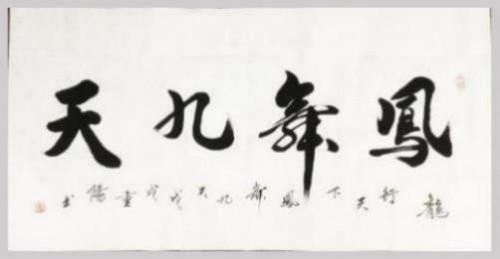 鳳舞九天
龍行天下鳳舞九天戊戌重陽書